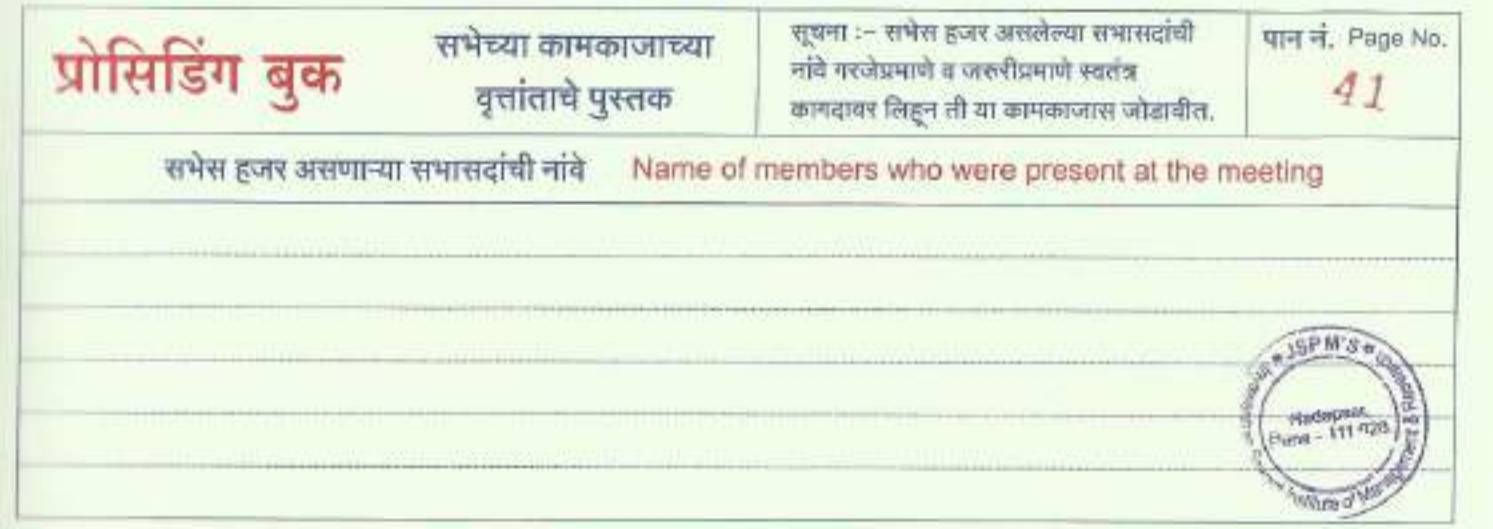 प्रोसिडिंग बुक
सभेच्या कामकाजाच्या
वृत्तांताचे पुस्तक
सूचना :– सभेस हजर असलेल्या सभासदांची
नांवे गरजेप्रमाणे व जरुरीप्रमाणे स्वतंत्र
कागदावर लिहून ती या कामकाजास जोडावीत.
पान नं. Page No.
41
सभेस हजर असणाऱ्या सभासदांची नांवे Name of members who were present at the meeting
JSPM'S
Hadapsar,
Institute of Management &